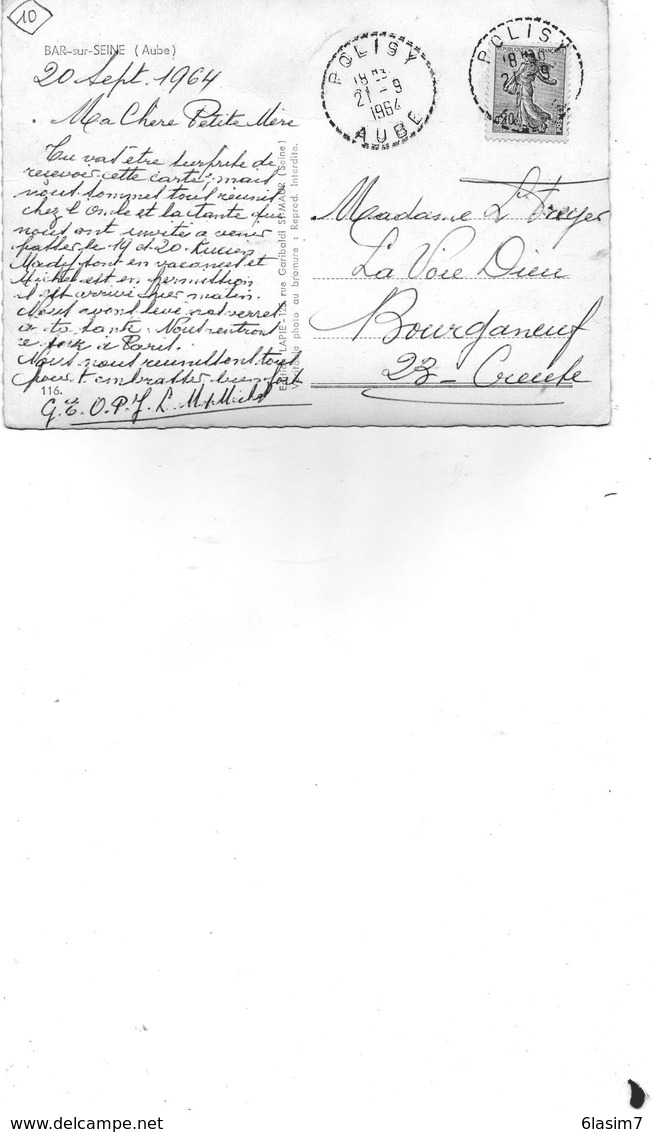 10
BAR-sur-SEINE (Aube)
20 Sept. 1964
Ma Chère Petite Mère
Tu vas être surprise de
recevoir cette carte, mais
nous sommes tous réunis
chez l'Oncle et la tante qui
nous ont invité à venir
passer le 19 et 20. Lucien
Mady sont en vacances et
Michel est en permission
il est arrivé hier matin.
Nous avons levé nos verres
à ta santé. Nous rentrons
ce soir à Paris.
Nous nous réunissons tous
pour t'embrasser bien fort
116.
G.E. O.P.J. L. M. Michel
Editions LAPIE - rue Garibaldi St-MAUR (Seine)
Véritable photo au bromure : Reprod. Interdite.
POLISY
18
21 - 9
1964
AUBE
POLISY
18
21 9
REPUBLIQUE FRANÇAISE
0,20
Madame
La Voie Dieu
Bourganeuf
23 - Creuse
6lasim7